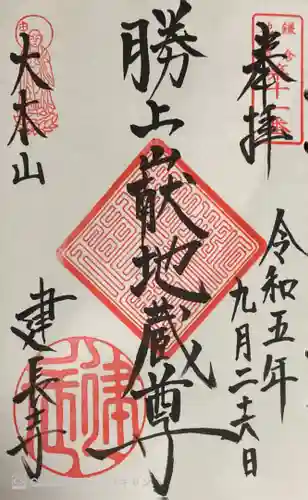 奉拝
令和五年
九月二十六日
勝上嶽地蔵尊
大本山
建長寺